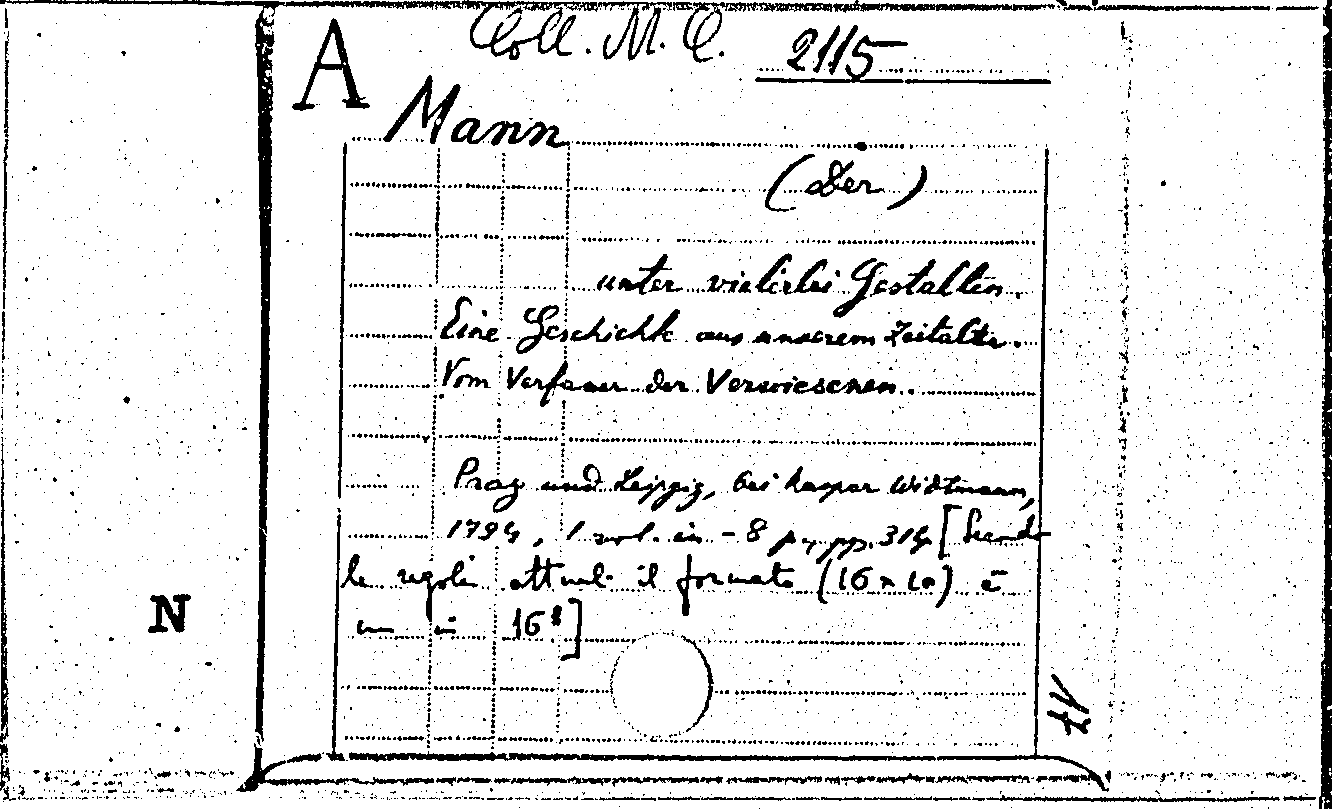 A
Coll. M. C. 2115
Mann
(Der)
unter vielerlei Gestalten.
Eine Geschichte aus unserem Zeitalter.
Vom Verfasser der Verwiesenen.
Prag und Leipzig, bei Kaspar Widtmann,
1794, 1 vol. in -8 p., pp. 314 [Secondo
le regole attuali il formato (16 x 10) è
un in 16°]
N